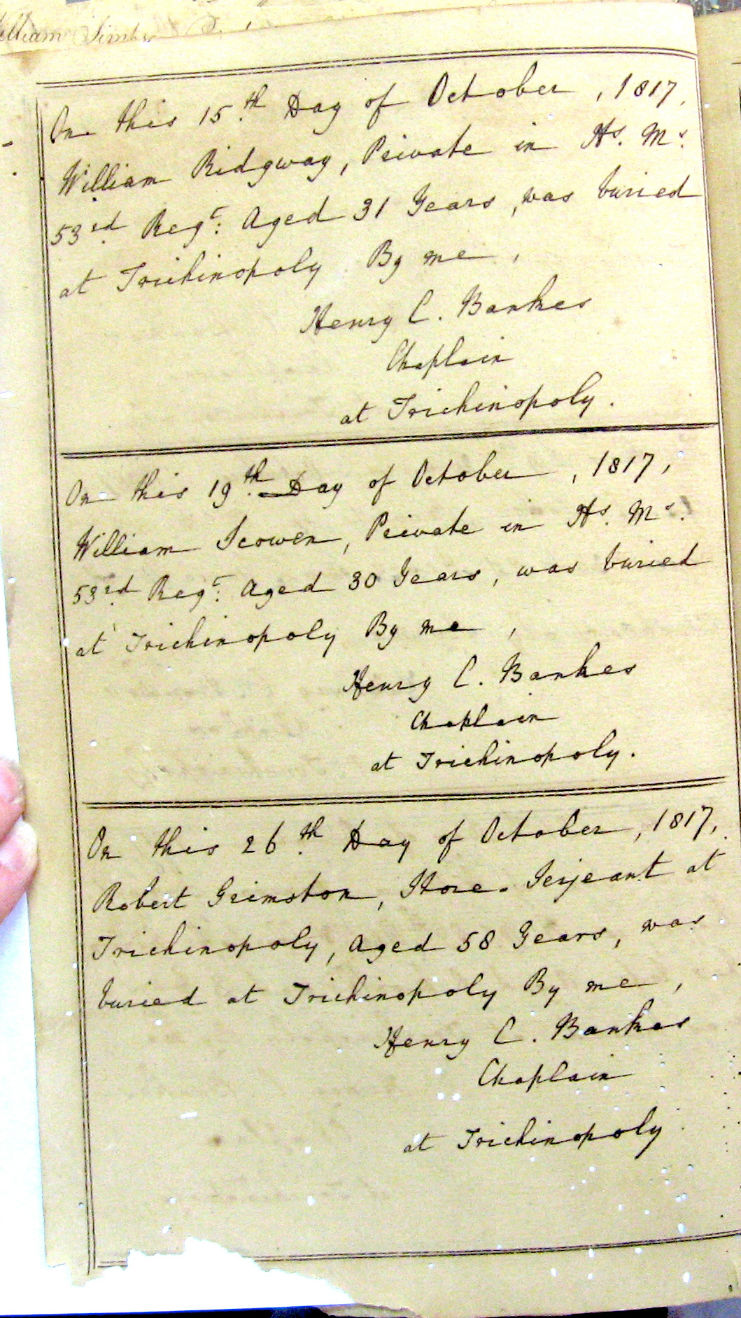 William Simber
On this 15th Day of October, 1817,
William Ridgway, Private in Hs. Ms.
53rd Regt: Aged 31 Years, was buried
at Trichinopoly By me,
Henry C. Bankes
Chaplain
at Trichinopoly.
On this 19th Day of October, 1817,
William Scowen, Private in Hs. Ms.
53rd Regt: Aged 30 Years, was buried
at Trichinopoly By me,
Henry C. Bankes
Chaplain
at Trichinopoly.
On this 26th Day of October, 1817,
Robert Grimston, Store-Serjeant at
Trichinopoly, Aged 58 Years, was
buried at Trichinopoly By me,
Henry C. Bankes
Chaplain
at Trichinopoly